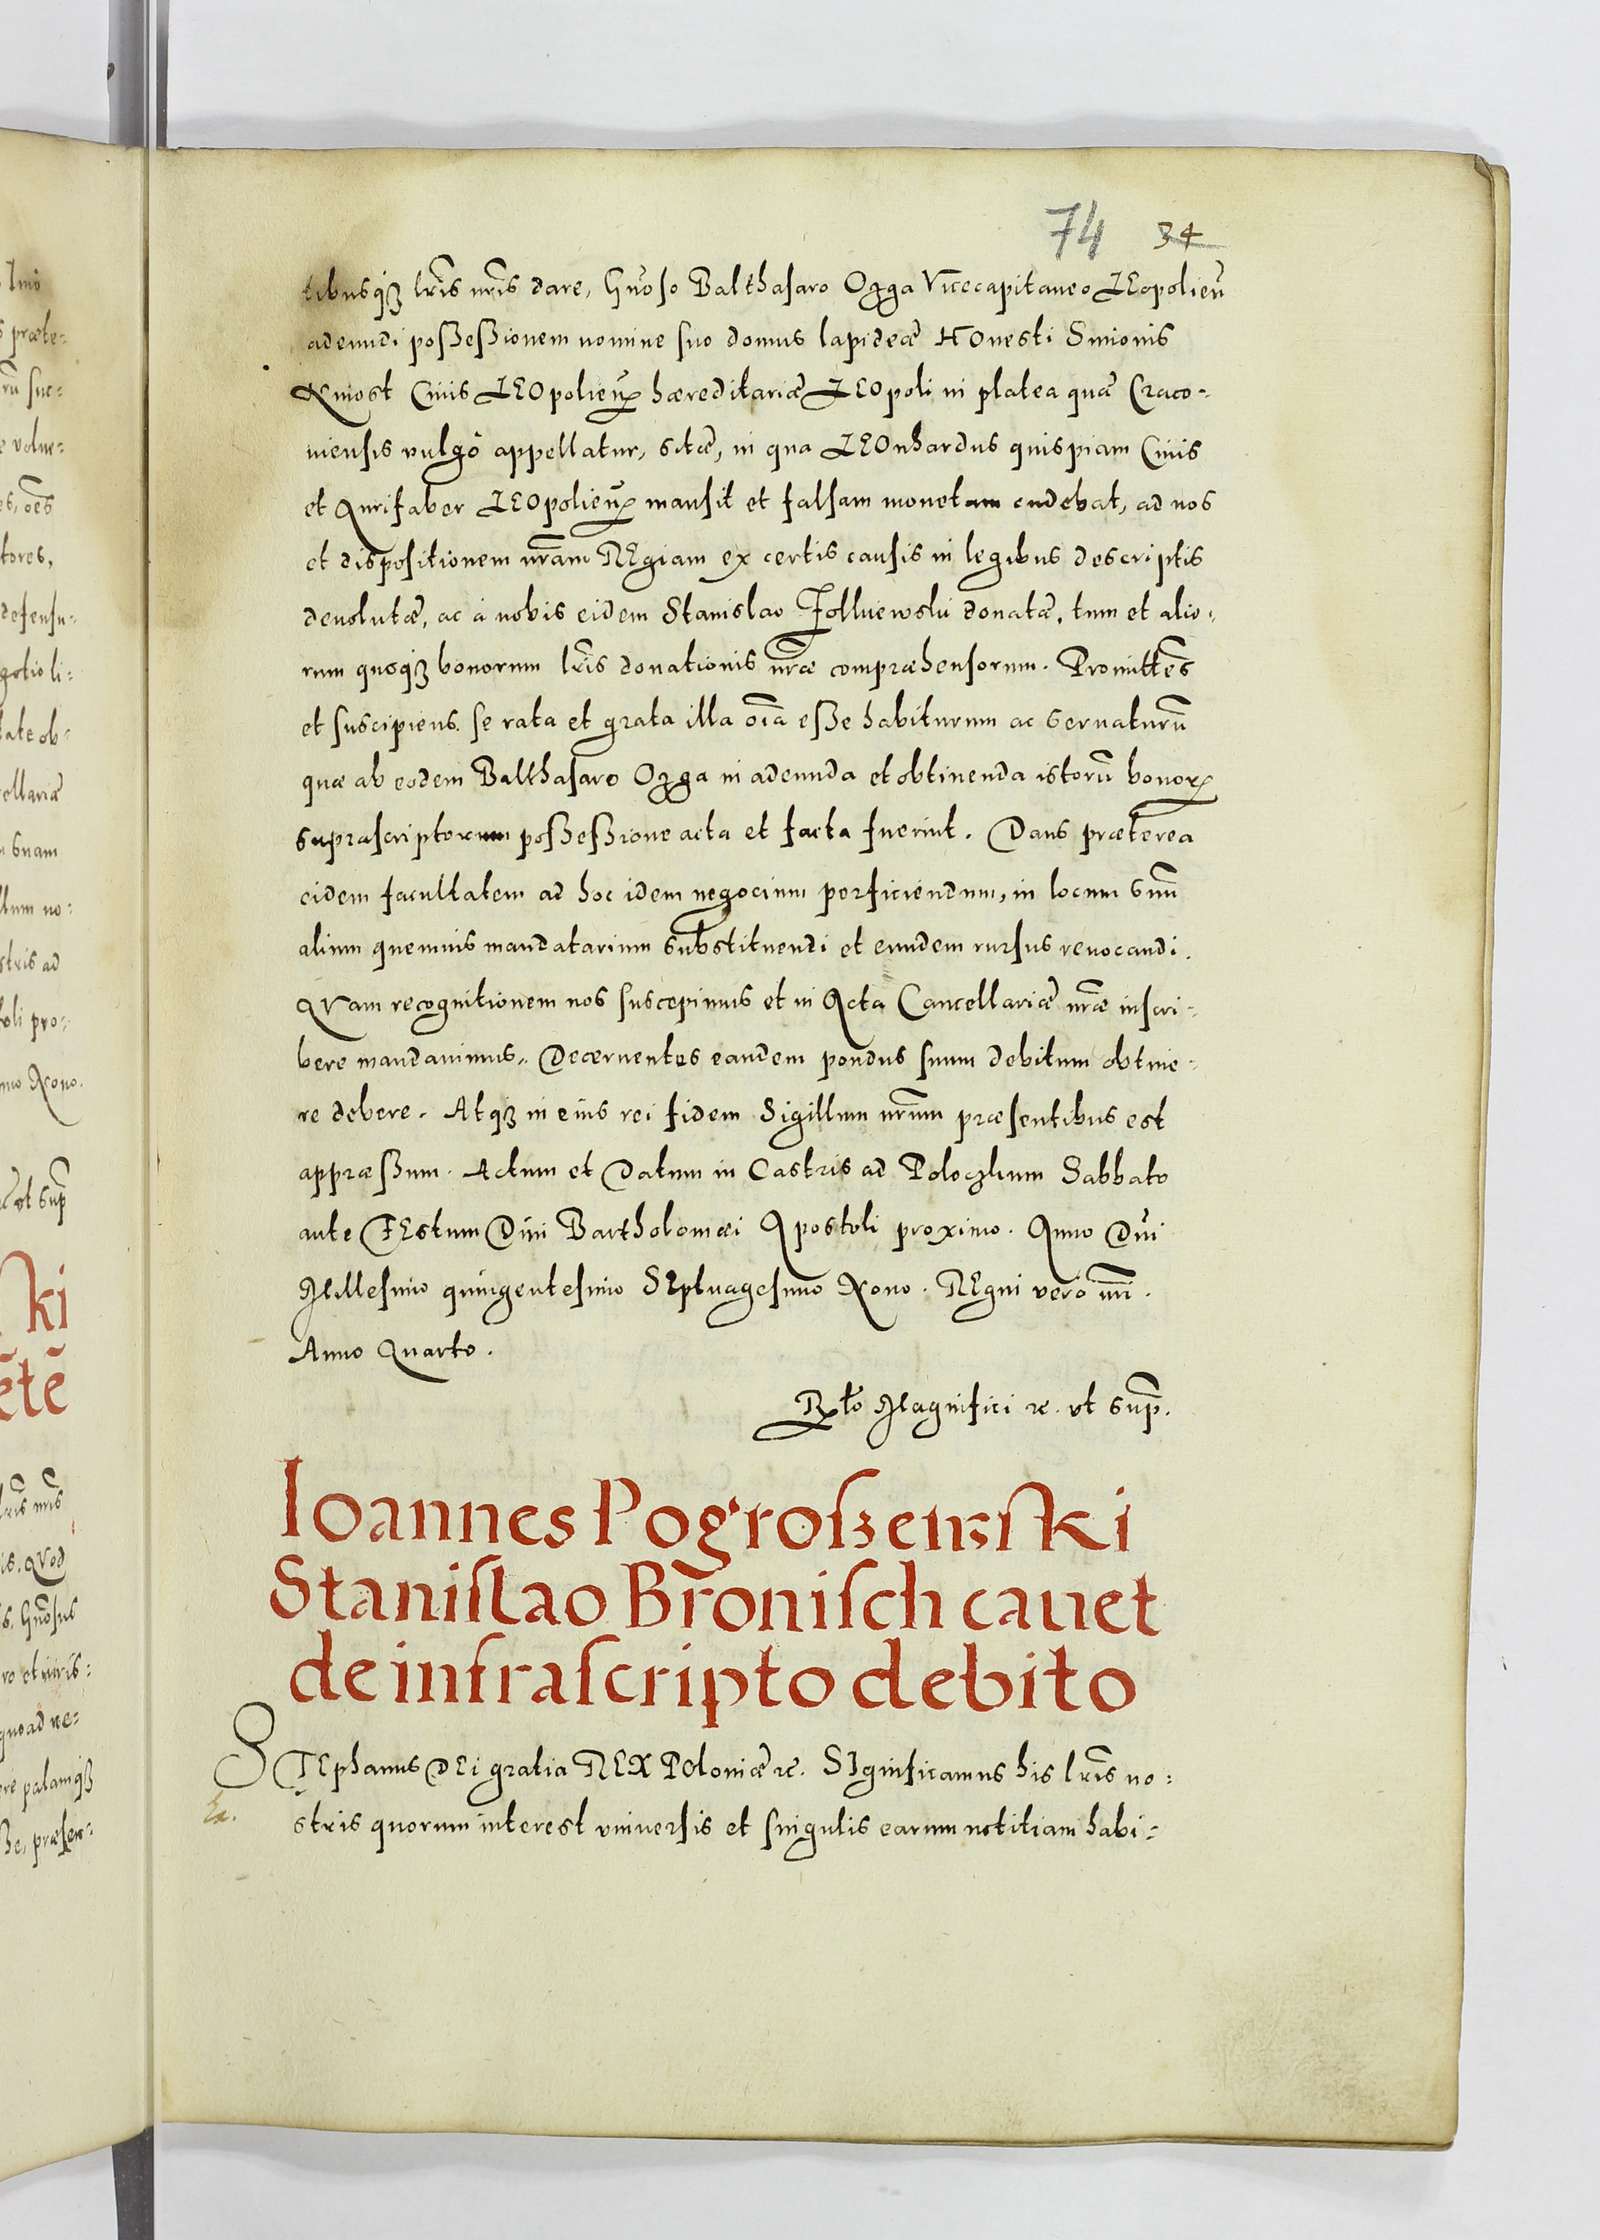 74 34
tibusqꝫ lr̃is nr̃is dare, Gñoso Balthasaro Ozga Vicecapitaneo LEopolień
adeundi poßeßionem nomine suo domus lapideæ HOnesti Simonis
Kniost Ciuis LEOpolień hæreditariæ LEOpoli in platea quæ Craco-
uiensis vulgò appellatur, sitæ, in qua LEOnhardus quispiam Ciuis
et Aurifaber LEOpolień mansit et falsam monetam cudebat, ad nos
et dispositionem nr̃am REgiam ex certis causis in legibus descriptis
deuolutæ, ac à nobis eidem Stanislao Zolkiewski donatæ, tum et alio-
rum quoqꝫ bonorum lr̃is donationis nr̃æ compræhensorum. Promittẽs
et suscipiens se rata et grata illa oĩa eße habiturum ac seruaturũ
quæ ab eodem Balthasaro Ozga in adeunda et obtinenda istorũ bonoꝝ
suprascriptorum poßeßione acta et facta fuerint. Dans præterea
eidem facultatem ad hoc idem negocium perficiendum, in locum suũ
alium quemuis mandatarium substituendi et eundem rursus reuocandi.
QVam recognitionem nos suscepimus et in Acta Cancellariæ nr̃æ inscri-
bere mandauimus. Decernentes eandem pondus suum debitum obtine-
re debere. Atqꝫ in eius rei fidem Sigillum nr̃um præsentibus est
appræßum. Actum et Datum in Castris ad Poloczkum Sabbato
ante FEstum Diui Bartholomæi Apostoli proximo. Anno Dñi
Millesimo quingentesimo SEptuagesimo Nono. REgni verò nr̃i.
Anno Quarto.
Rꝉto Magnifici ꝛc. vt sup̃.
Ioannes Pogroßewski
Stanislao Bronisch cauet
de infrascripto debito
STEphanus DEi gratia REX POloniæ ꝛc. SIgnificamus his lr̃is no-
stris quorum interest vniuersis et singulis earum notitiam habi-